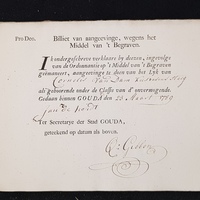 Pro Deo. Billiet van aangeevinge, wegens het
Middel van 't Begraven.
Ik ondergeschreve verklaare by deezen, ingevolge
van de Ordonnantie op 't Middel van 't Begraven
geëmaneert, aangeevinge te doen van het Lyk van
Cornelis van Dam
als gehoorende onder de Classe van d' onvermogende.
Gedaan binnen GOUDA den 23 Maart
Ter Secretarye der Stad GOUDA,
geteekend op datum als boven.